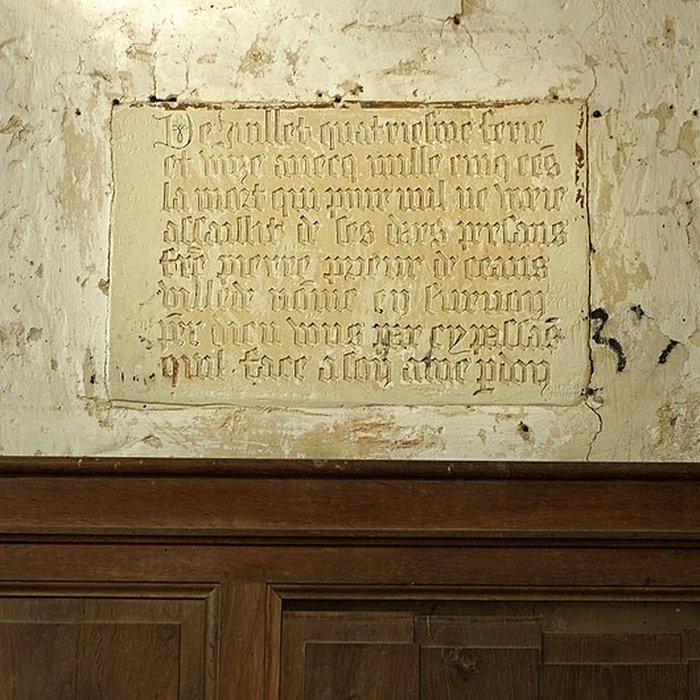 De Juillet quatriesme ferie
et unze avecq mille cinq cēs
la mort qui pour nul ne varie
assaillit de ses dars presans
frē pierre prieur de ceans
villede nōme en surnon
pēr dieu vous cy passāē
quil face a son ame pdon